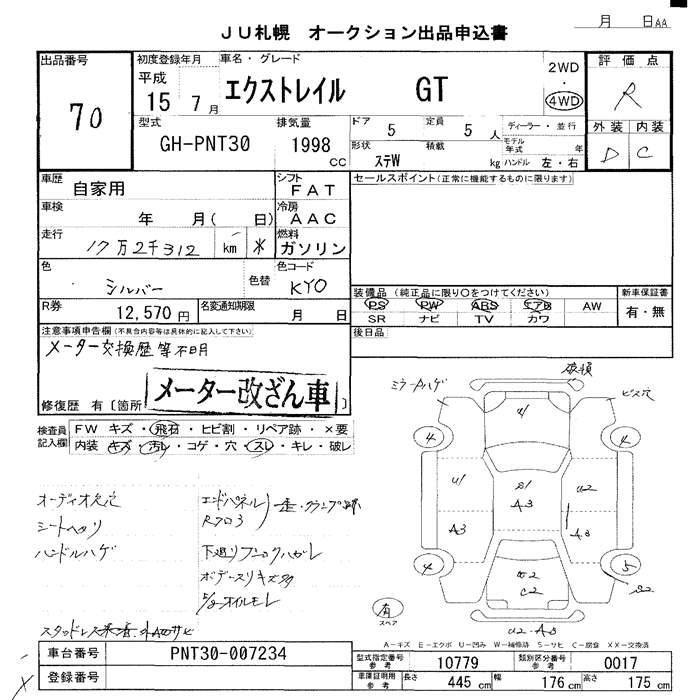 月 日AA
JU札幌 オークション出品申込書
出品番号
70
初度登録年月
平成
15 7月
車名・グレード
エクストレイル GT
2WD
・
4WD
評価点
R
型式
GH-PNT30
排気量
1998 CC
ドア 5
定員 5 人
ディーラー・並行
形状 ステW
積載 kg
モデル年式 年
ハンドル 左・右
外装 内装
D C
車歴 自家用
シフト FAT
セールスポイント(正常に機能するものに限ります)
車検 年 月( 日)
冷房 AAC
走行 17万2千312 km *
燃料 ガソリン
色 シルバー 色替
色コード KY0
R券 12,570円
名変通知期限 月 日
装備品 (純正品に限り○をつけてください)
PS PW ABS エアB AW
SR ナビ TV カワ
新車保証書
有・無
後日品
注意事項申告欄(不具合内容等は具体的に記入して下さい)
メーター交換歴等不明
メーター改ざん車
修復歴 有〔箇所 〕
検査員記入欄
FW キズ・飛石・ヒビ割・リペア跡・×要
内装 キズ・汚レ・コゲ・穴・スレ・キレ・破レ
オーディオ欠穴
シートヘタリ
ハンドルハゲ
エンドパネル
下廻り
オイルモレ
スタッドレス
ミラーAハゲ
破損
ビス穴
4 4
U1
U1 A3
A3
U2 A3
4 5
C2
有
スペア
U2・A3
A-キズ E-エクボ U-凹み W-補修跡 S-サビ C-腐食 XX-交換済
車台番号 PNT30-007234
登録番号
型式指定番号参考 10779
類別区分番号参考 0017
車庫証明用参考 長さ 445cm 幅 176cm 高さ 175cm